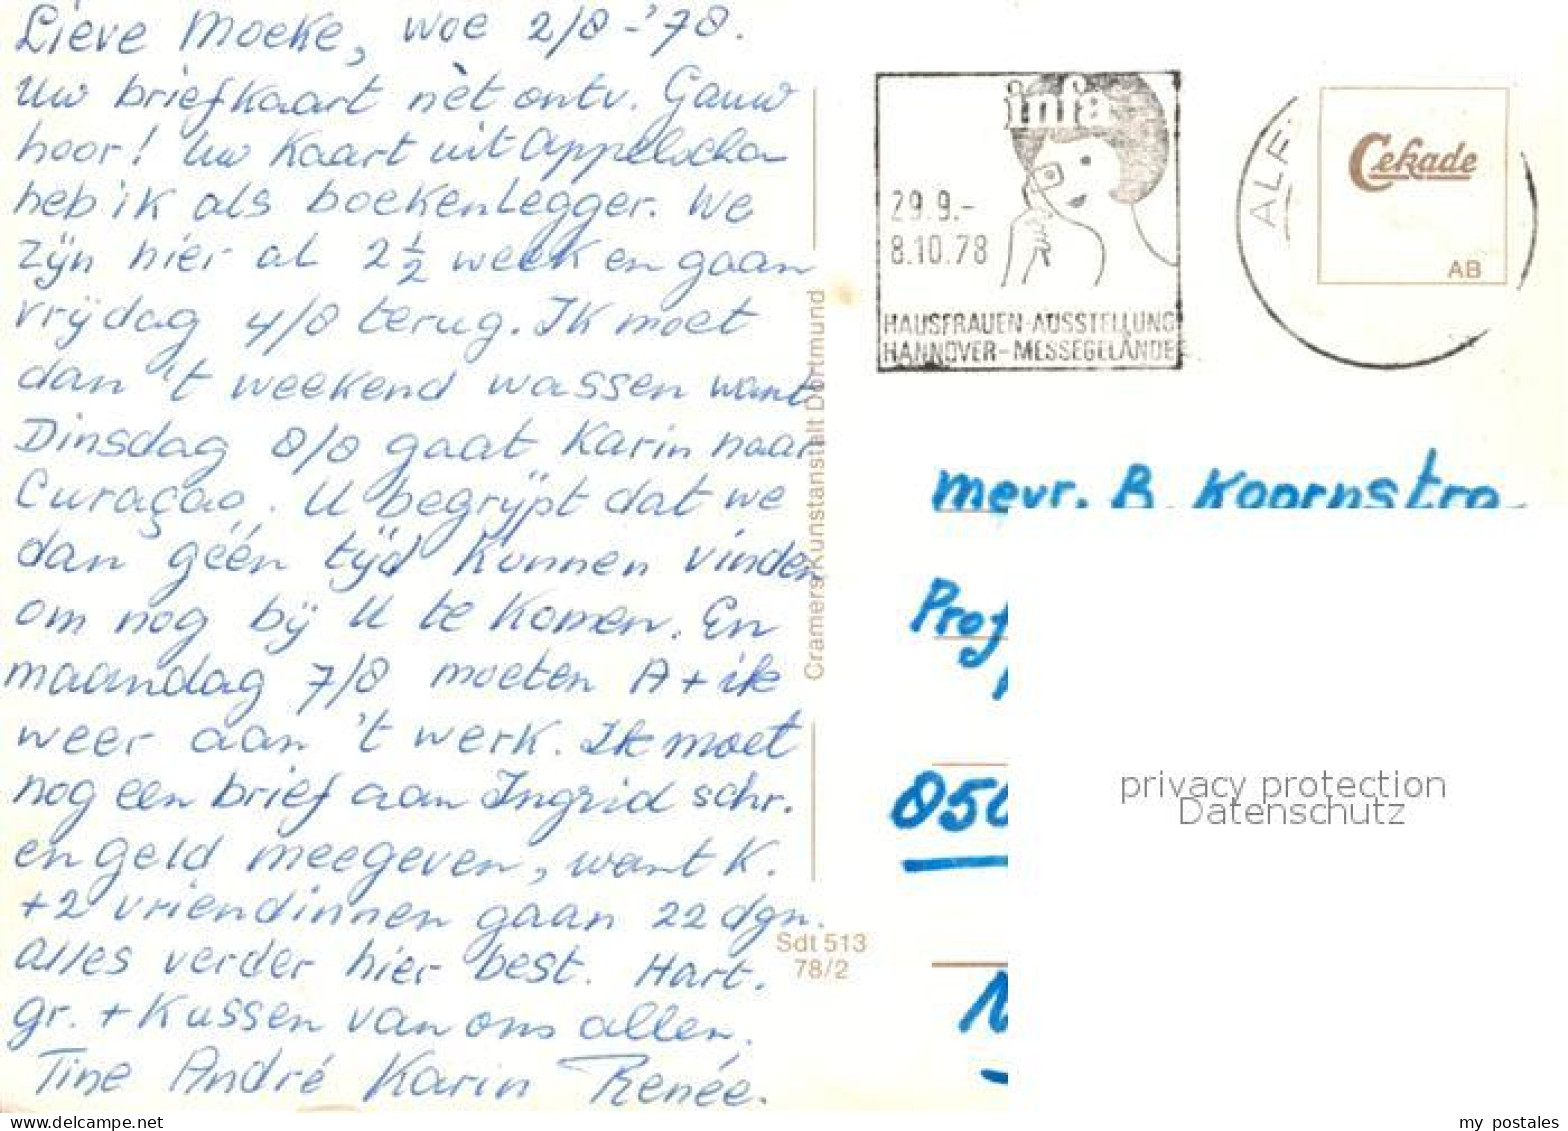 Lieve Moeke, woe 2/8-'78.
Uw briefkaart nèt ontv. Gauw
hoor! Uw kaart uit Appelscha
heb ik als boekenlegger. We
zijn hier al 2 1/2 week en gaan
vrijdag 4/8 terug. Ik moet
dan 't weekend wassen want
Dinsdag 8/8 gaat Karin naar
Curaçao. U begrijpt dat we
dan géén tijd kunnen vinden
om nog bij U te komen. En
maandag 7/8 moeten A + ik
weer aan 't werk. Ik moet
nog een brief aan Ingrid schr.
en geld meegeven, want K.
+2 vriendinnen gaan 22 dgn.
Alles verder hier best. Hart.
gr. + Kussen van ons allen.
Tine André Karin Renée.
Cramers Kunstanstalt Dortmund
Sdt 513
78/2
infa
29.9.-
8.10.78
HAUSFRAUEN-AUSSTELLUNG
HANNOVER-MESSEGELÄNDE
ALF
Cekade
AB
mevr. B. Koornstra
Prof
850
N
privacy protection
Datenschutz
www.delcampe.net
my_postales